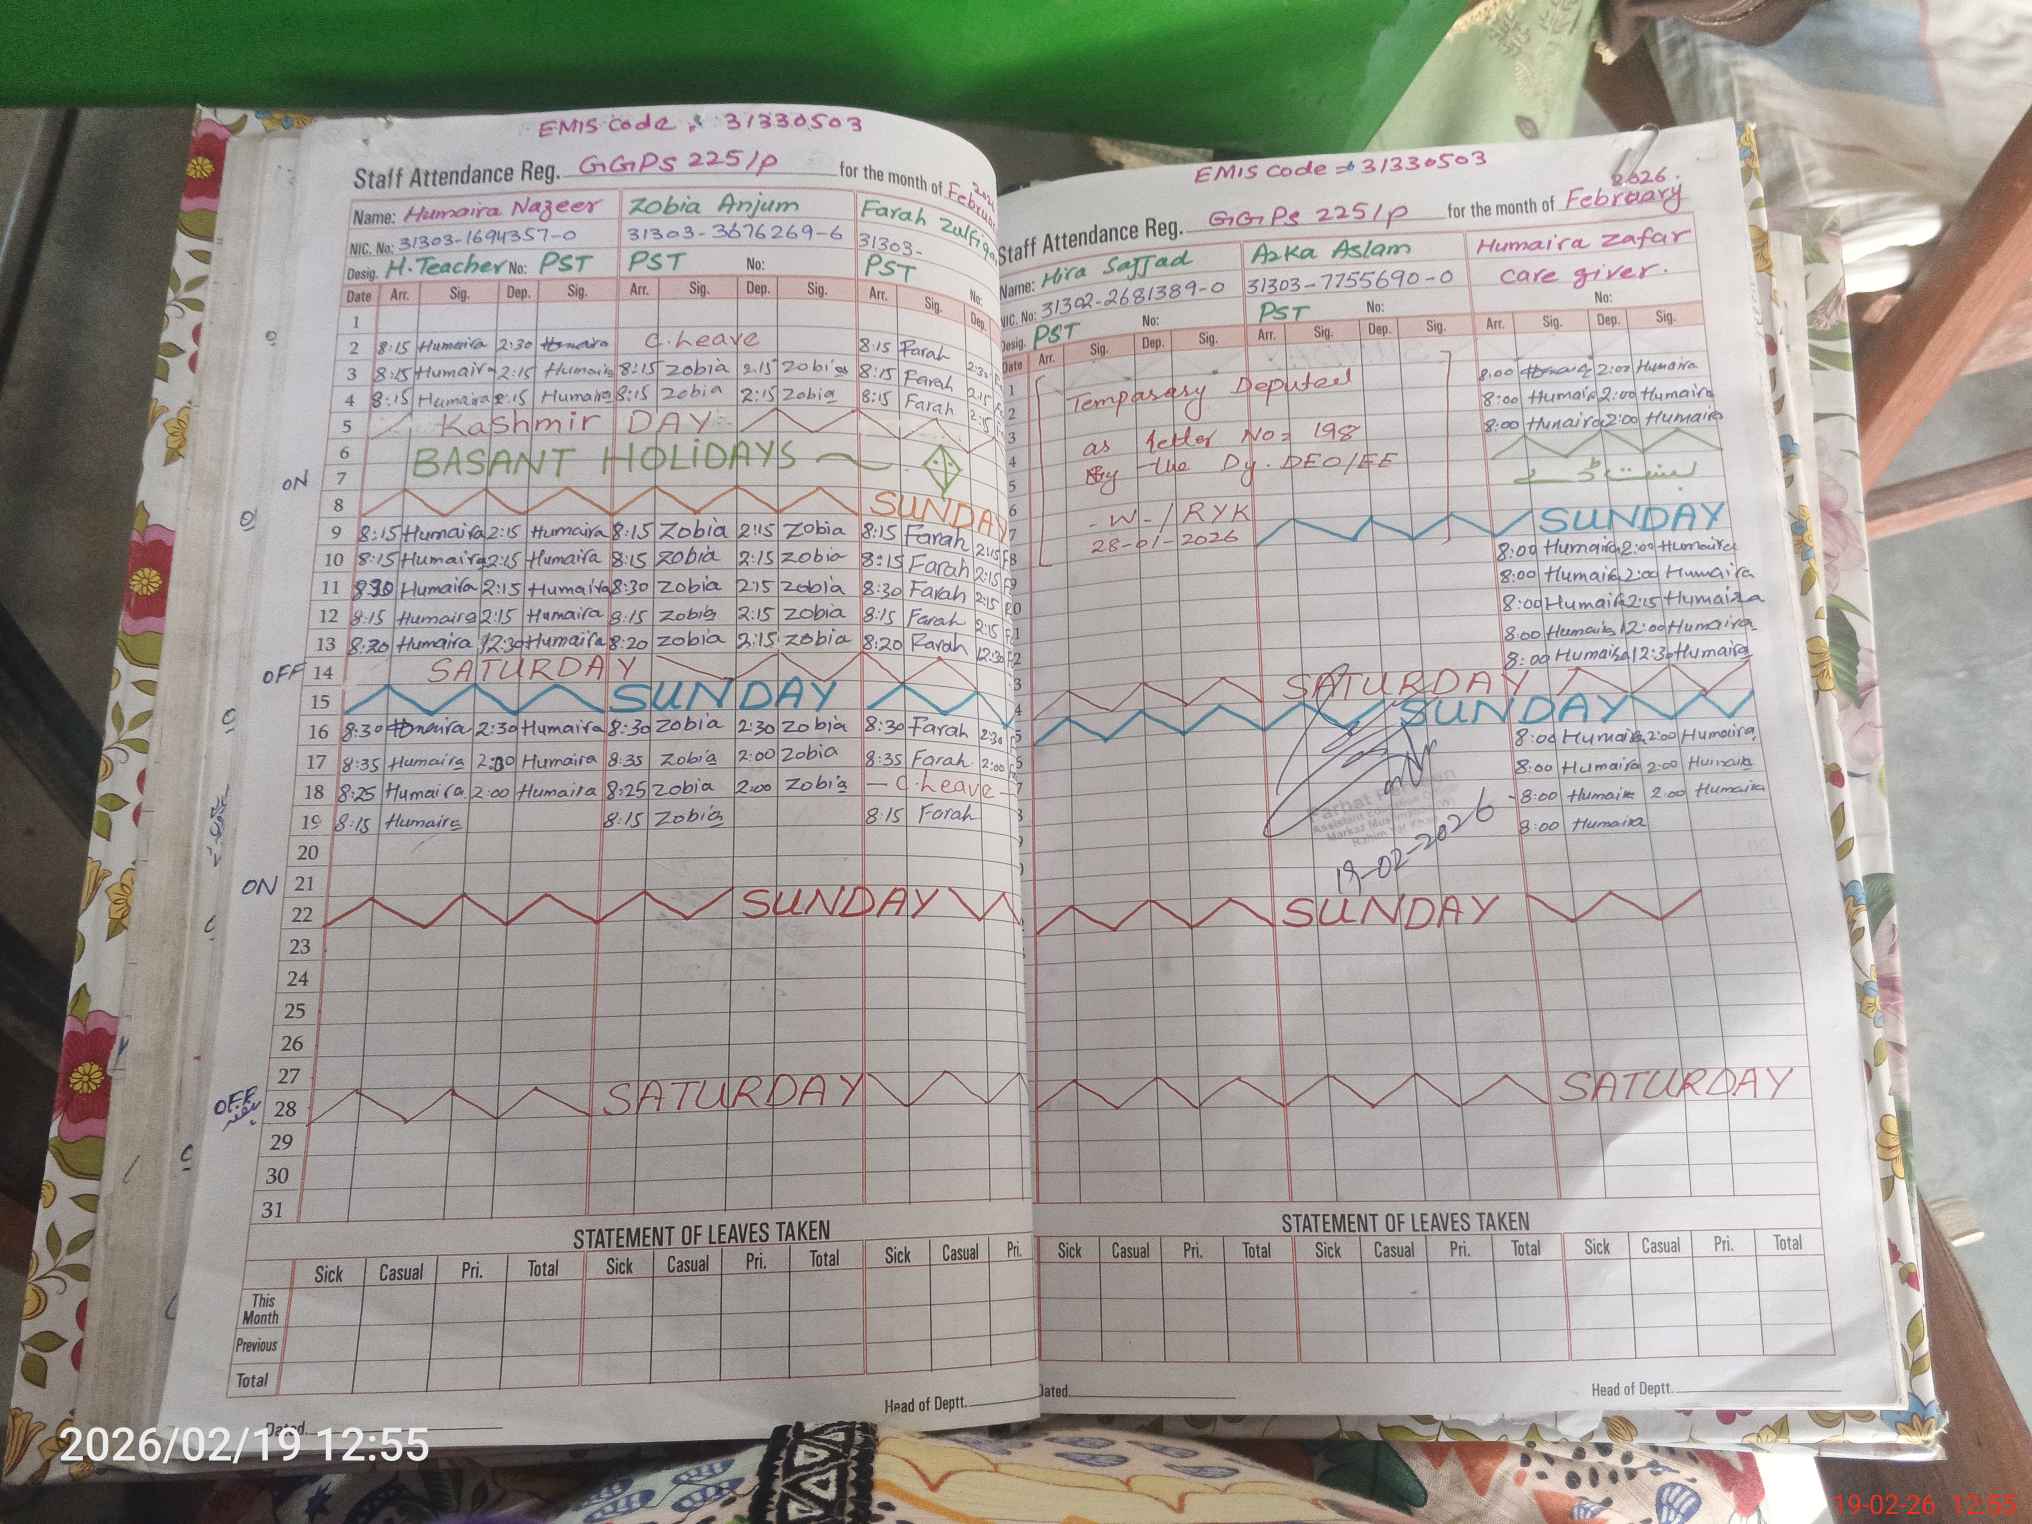 EMIS code : 31330503
Staff Attendance Reg. GGPS 225/P for the month of February 2026
Name: Humaira Nazeer Zobia Anjum Farah Zulfiqar
NIC. No: 31303-1694357-0 31303-3676269-6 31303-
Desig. H.Teacher No: PST PST No: PST No:
Date Arr. Sig. Dep. Sig. Arr. Sig. Dep. Sig. Arr. Sig. Dep.
1
2 8:15 Humaira 2:30 Humaira C.Leave 8:15 Farah 2:30
3 8:15 Humaira 2:15 Humaira 8:15 Zobia 2:15 Zobia 8:15 Farah 2:15
4 8:15 Humaira 2:15 Humaira 8:15 Zobia 2:15 Zobia 8:15 Farah 2:15
5 Kashmir DAY
6 BASANT HOLIDAYS
ON 7
8 SUNDAY
9 8:15 Humaira 2:15 Humaira 8:15 Zobia 2:15 Zobia 8:15 Farah 2:15
10 8:15 Humaira 2:15 Humaira 8:15 Zobia 2:15 Zobia 8:15 Farah 2:15
11 8:30 Humaira 2:15 Humaira 8:30 Zobia 2:15 Zobia 8:30 Farah 2:15
12 8:15 Humaira 2:15 Humaira 8:15 Zobia 2:15 Zobia 8:15 Farah 2:15
13 8:20 Humaira 12:30 Humaira 8:20 Zobia 2:15 Zobia 8:20 Farah 12:30
OFF 14 SATURDAY
15 SUNDAY
16 8:30 Humaira 2:30 Humaira 8:30 Zobia 2:30 Zobia 8:30 Farah 2:30
17 8:35 Humaira 2:00 Humaira 8:35 Zobia 2:00 Zobia 8:35 Farah 2:00
18 8:25 Humaira 2:00 Humaira 8:25 Zobia 2:00 Zobia - C.Leave -
19 8:15 Humaira 8:15 Zobia 8:15 Farah
20
ON 21
22 SUNDAY
23
24
25
26
27
OFF 28 SATURDAY
29
30
31
STATEMENT OF LEAVES TAKEN
Sick Casual Pri. Total Sick Casual Pri. Total Sick Casual Pri.
This Month
Previous
Total
Head of Deptt.
Dated
EMIS Code = 31330503
Staff Attendance Reg. GGPS 225/P for the month of February 2026.
Name: Hira Sajjad Azka Aslam Humaira Zafar
NIC. No: 31302-2681389-0 31303-7755690-0 care giver.
Desig. PST No: PST No: No:
Date Arr. Sig. Dep. Sig. Arr. Sig. Dep. Sig. Arr. Sig. Dep. Sig.
Temporary Deputed
as letter No= 198
By the Dy. DEO/EE
-W-/RYK
28-01-2026
8:00 Humaira 2:00 Humaira
8:00 Humaira 2:00 Humaira
8:00 Humaira 2:00 Humaira
بسنت ڈے
SUNDAY
8:00 Humaira 2:00 Humaira
8:00 Humaira 2:00 Humaira
8:00 Humaira 2:15 Humaira
8:00 Humaira 12:00 Humaira
8:00 Humaira 12:30 Humaira
SATURDAY
SUNDAY
8:00 Humaira 2:00 Humaira
8:00 Humaira 2:00 Humaira
8:00 Humaira 2:00 Humaira
8:00 Humaira
19-02-2026
SUNDAY
SATURDAY
STATEMENT OF LEAVES TAKEN
Sick Casual Pri. Total Sick Casual Pri. Total Sick Casual Pri. Total
Dated
Head of Deptt.
2026/02/19 12:55
19-02-26 12:55